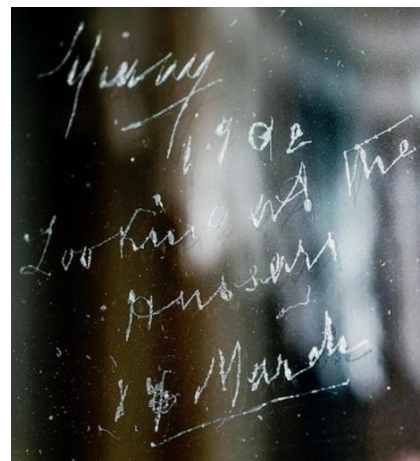 1902
Looking at the
Hussars
March